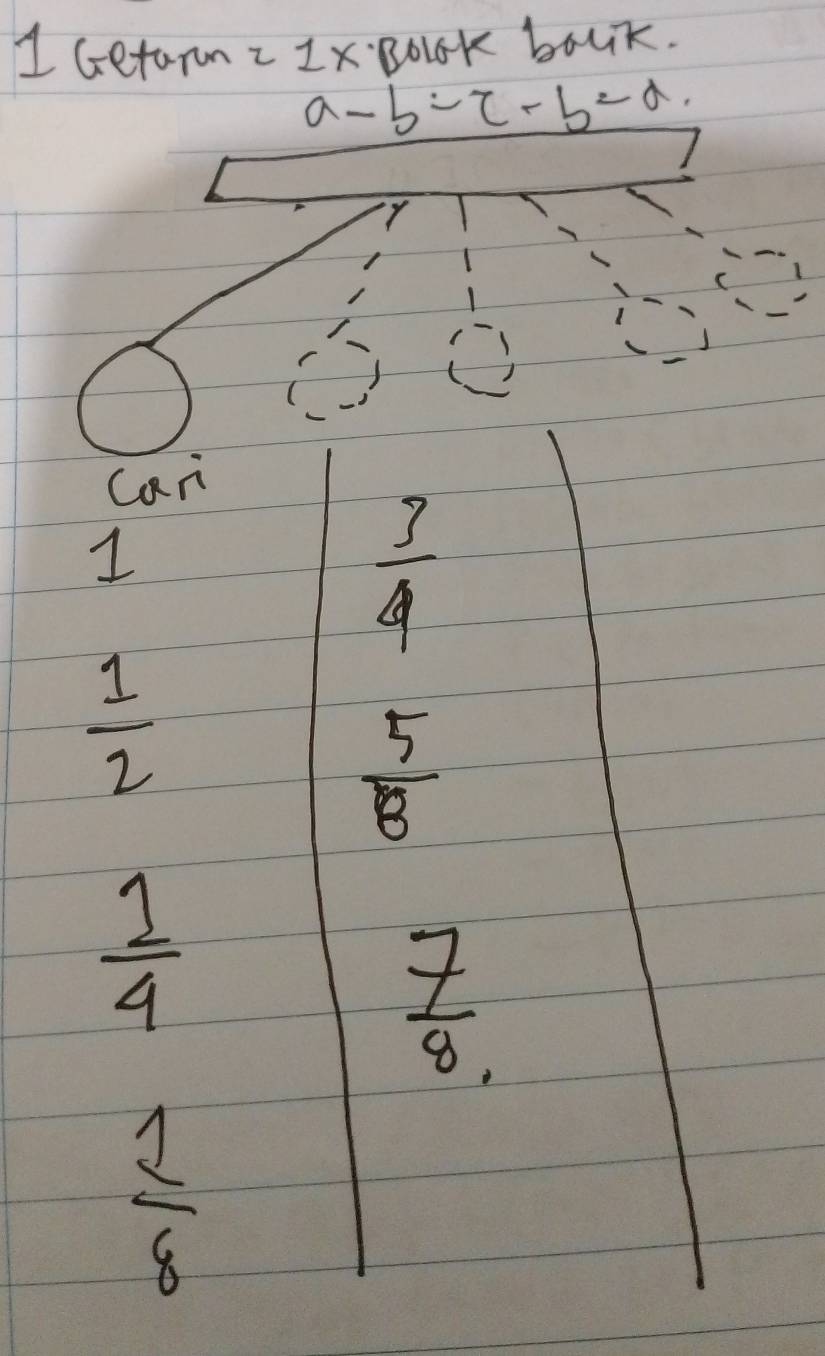 1 Getaran = 1x Bolak balik.
a - b - c - b - a.
Cari
1
1/2
1/4
1/8
3/4
5/8
7/8.